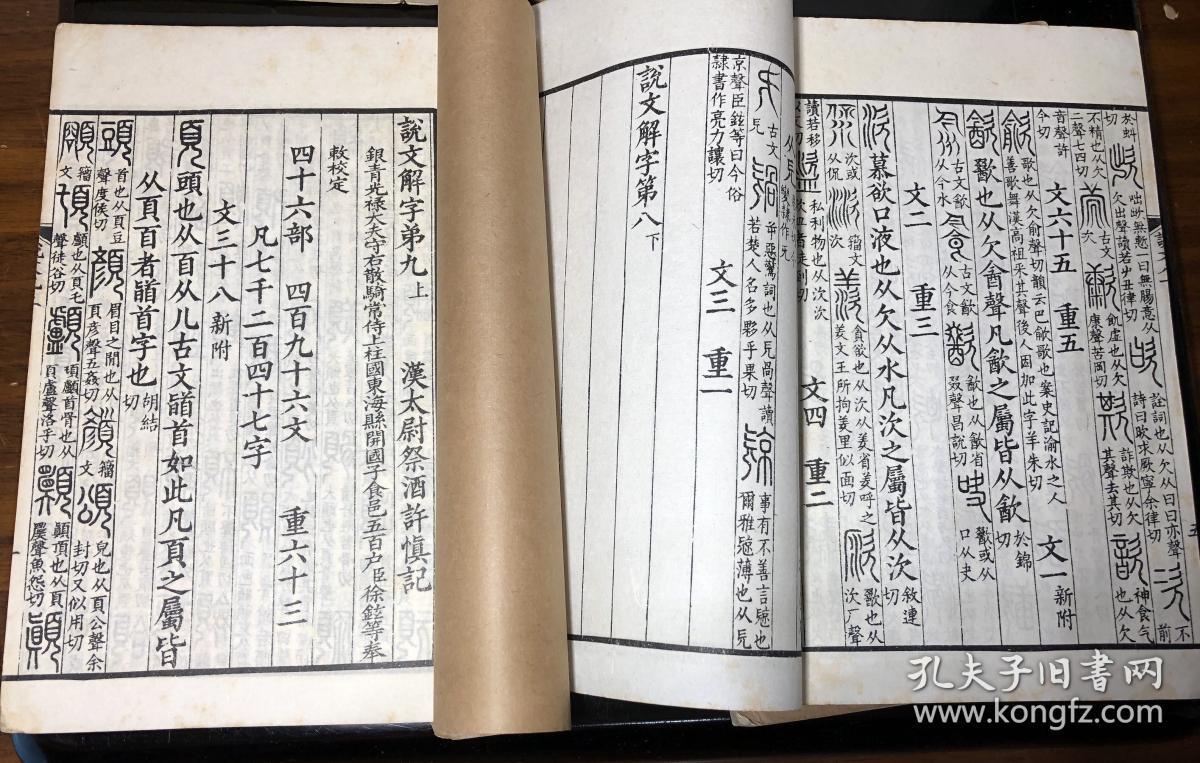 於蚪切 咄欪無慙一曰無腸意从欠出聲讀若屮丑律切 詮詞也从欠从曰曰亦聲詩曰欥求厥寧余律切 不前
不精也从欠 古文 飢虛也从欠康聲苦岡切 詐欺也从欠其聲去其切 神食气也从欠
音聲許今切 文六十五 重五
歌也从欠俞聲切韻云巴歈歌也案史記渝水之人善歌舞漢高祖采其聲後人因加此字羊朱切 文一新附
歠也从欠酓聲凡㱃之屬皆从㱃於錦切
古文㱃从今水 古文㱃从今食 㱃也从㱃省叕聲昌說切 歠或从口从史
文二 重三
慕欲口液也从欠从水凡㳄之屬皆从㳄敘連切
㳄或从侃 籒文㳄 貪欲也从㳄从羑省羑呼之羑文王所拘羑里似面切 歠也从㳄厂聲
讀若移 私利物也从㳄㳄 文四 重二
古文 屰惡驚詞也从旡咼聲讀若楚人名多夥乎果切 事有不善言㹁也爾雅㹁薄也从旡
京聲臣鉉等曰今俗隸書作亮力讓切 文三 重一
說文解字第八下
說文解字弟九上 漢太尉祭酒許慎記
銀青光祿大夫守右散騎常侍上柱國東海縣開國子食邑五百户臣徐鉉等奉
敕校定
四十六部 四百九十六文 重六十三
凡七千二百四十七字
文三十八新附
頁頭也从𦣻从儿古文䭫首如此凡頁之屬皆
从頁𦣻者䭫首字也胡結切
頭 首也从頁豆聲度侯切 顏 眉目之閒也从頁彦聲五姦切 籒文 頌 皃也从頁公聲余封切又似用切
籒文 顧也从頁乇聲徒谷切 䪼顱首骨也从頁盧聲洛乎切 顚頂也从頁㬎聲魚怨切 顚
孔夫子旧书网
www.kongfz.com